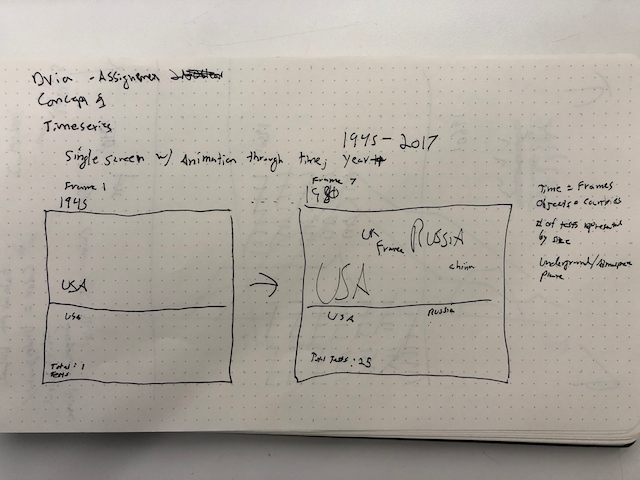 DVia - Assignment
Concept
Timeseries
1945 - 2017
Single screen w/ Animation through time, year
Frame 1
1945
USA
USA
Total: 1
Tests
Frame ?
198
UK
France
RUSSIA
china
USA
USA
Russia
Total Tests: 25
Time = Frames
Objects = Countries
# of tests represented
by size
Underground/Atmosphere
plane